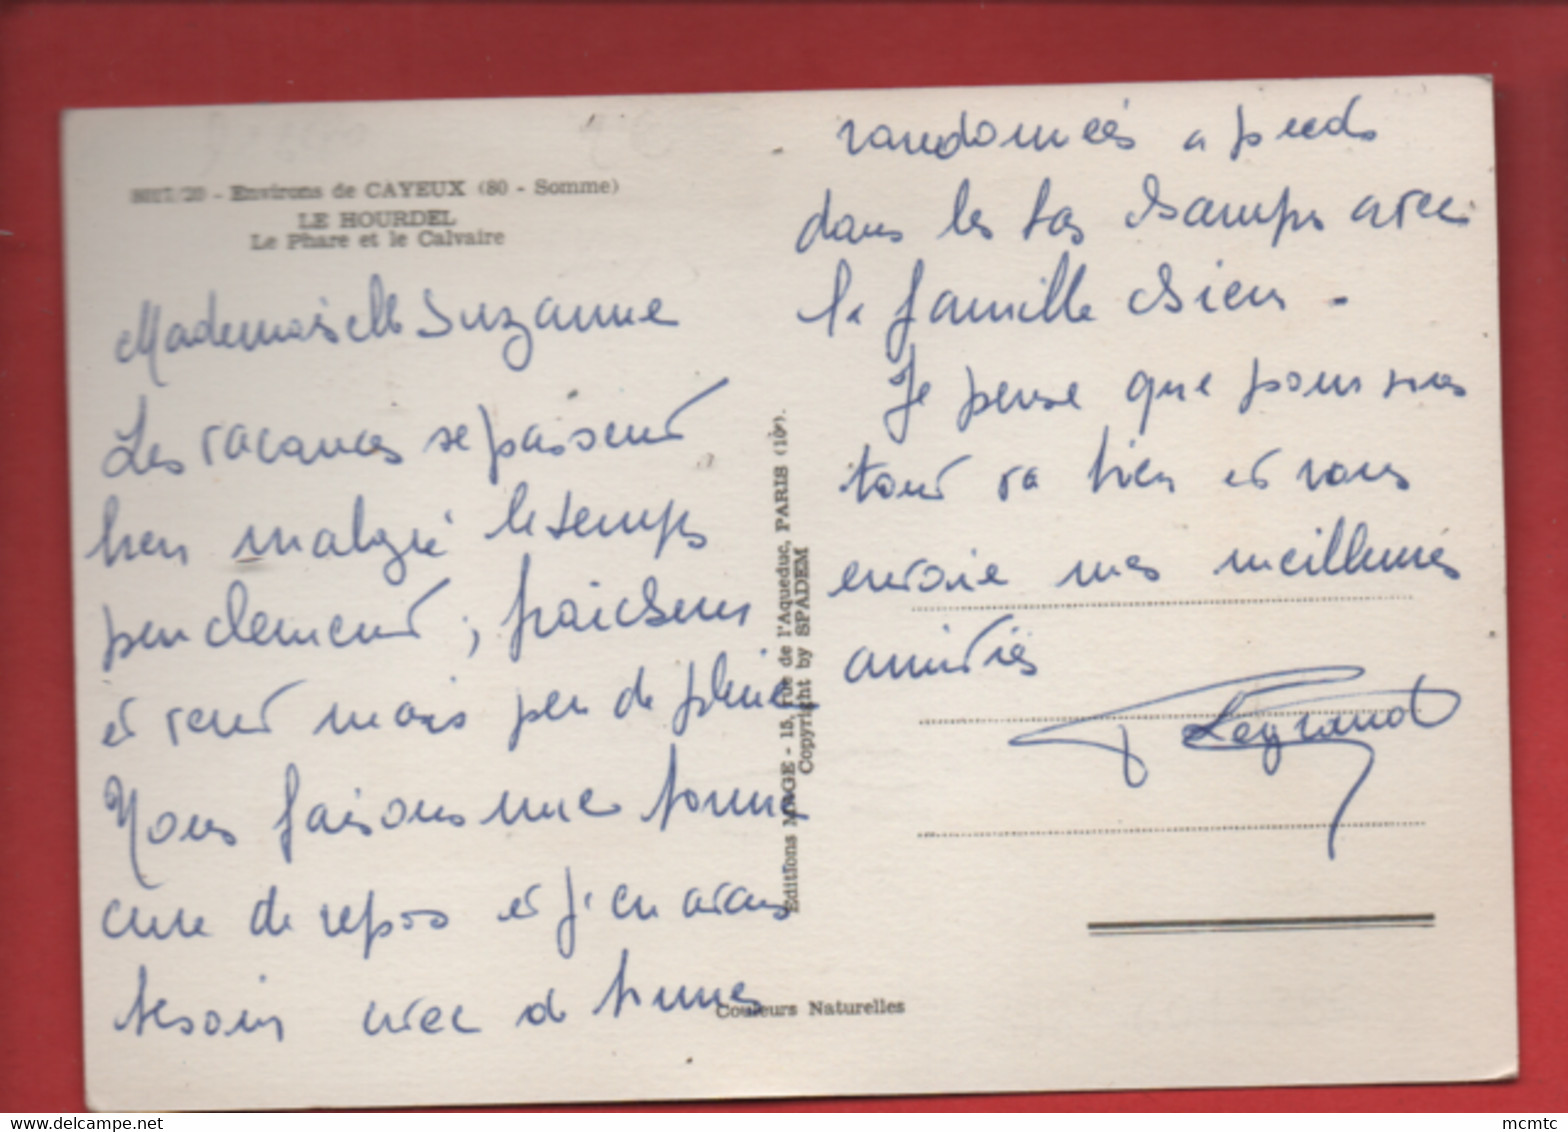 - Environs de CAYEUX (80 - Somme)
LE HOURDEL
Le Phare et le Calvaire
Mademoiselle Suzanne
Les vacances se passent
bien malgré le temps
peu clement, fraicheur
et vent mais peu de pluie
Nous faisons une bonne
cure de repos et j'en avais
besoin avec de bonnes
randonnées a pieds
dans les bas champs avec
la famille chien -
Je pense que pour vous
tout va bien et vous
envoie mes meilleures
amitiés
Legrand
Editions MAGE - 15, rue de l'Aqueduc, PARIS (10e).
Copyright by SPADEM
Couleurs Naturelles
mcmtc